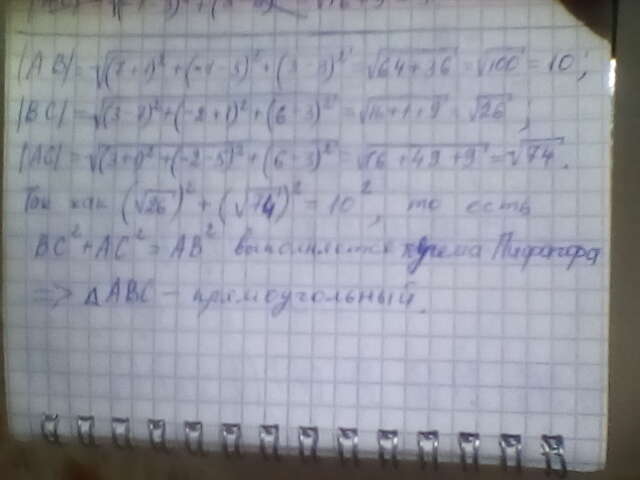 |AB| = √(7+1)² + (-1-5)² + (3-3)² = √64+36 = √100 = 10;
|BC| = √(3-7)² + (-2+1)² + (6-3)² = √16+1+9 = √26;
|AC| = √(3+1)² + (-2-5)² + (6-3)² = √16+49+9 = √74.
Так как (√26)² + (√74)² = 10², то есть
BC² + AC² = AB² выполняется теорема Пифагора
=> △ABC - прямоугольный.